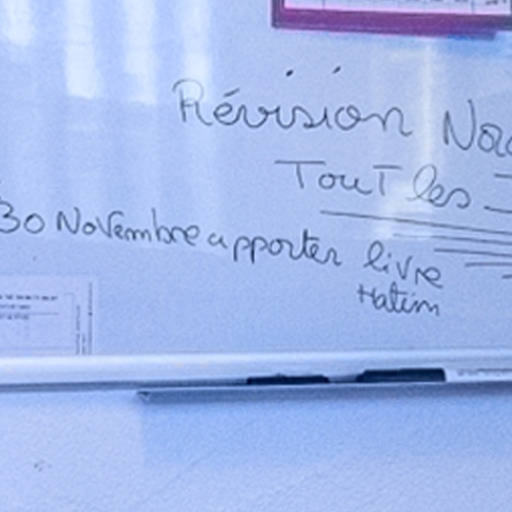 Révision
Tout les
30 Novembre apporter livre
Hatim